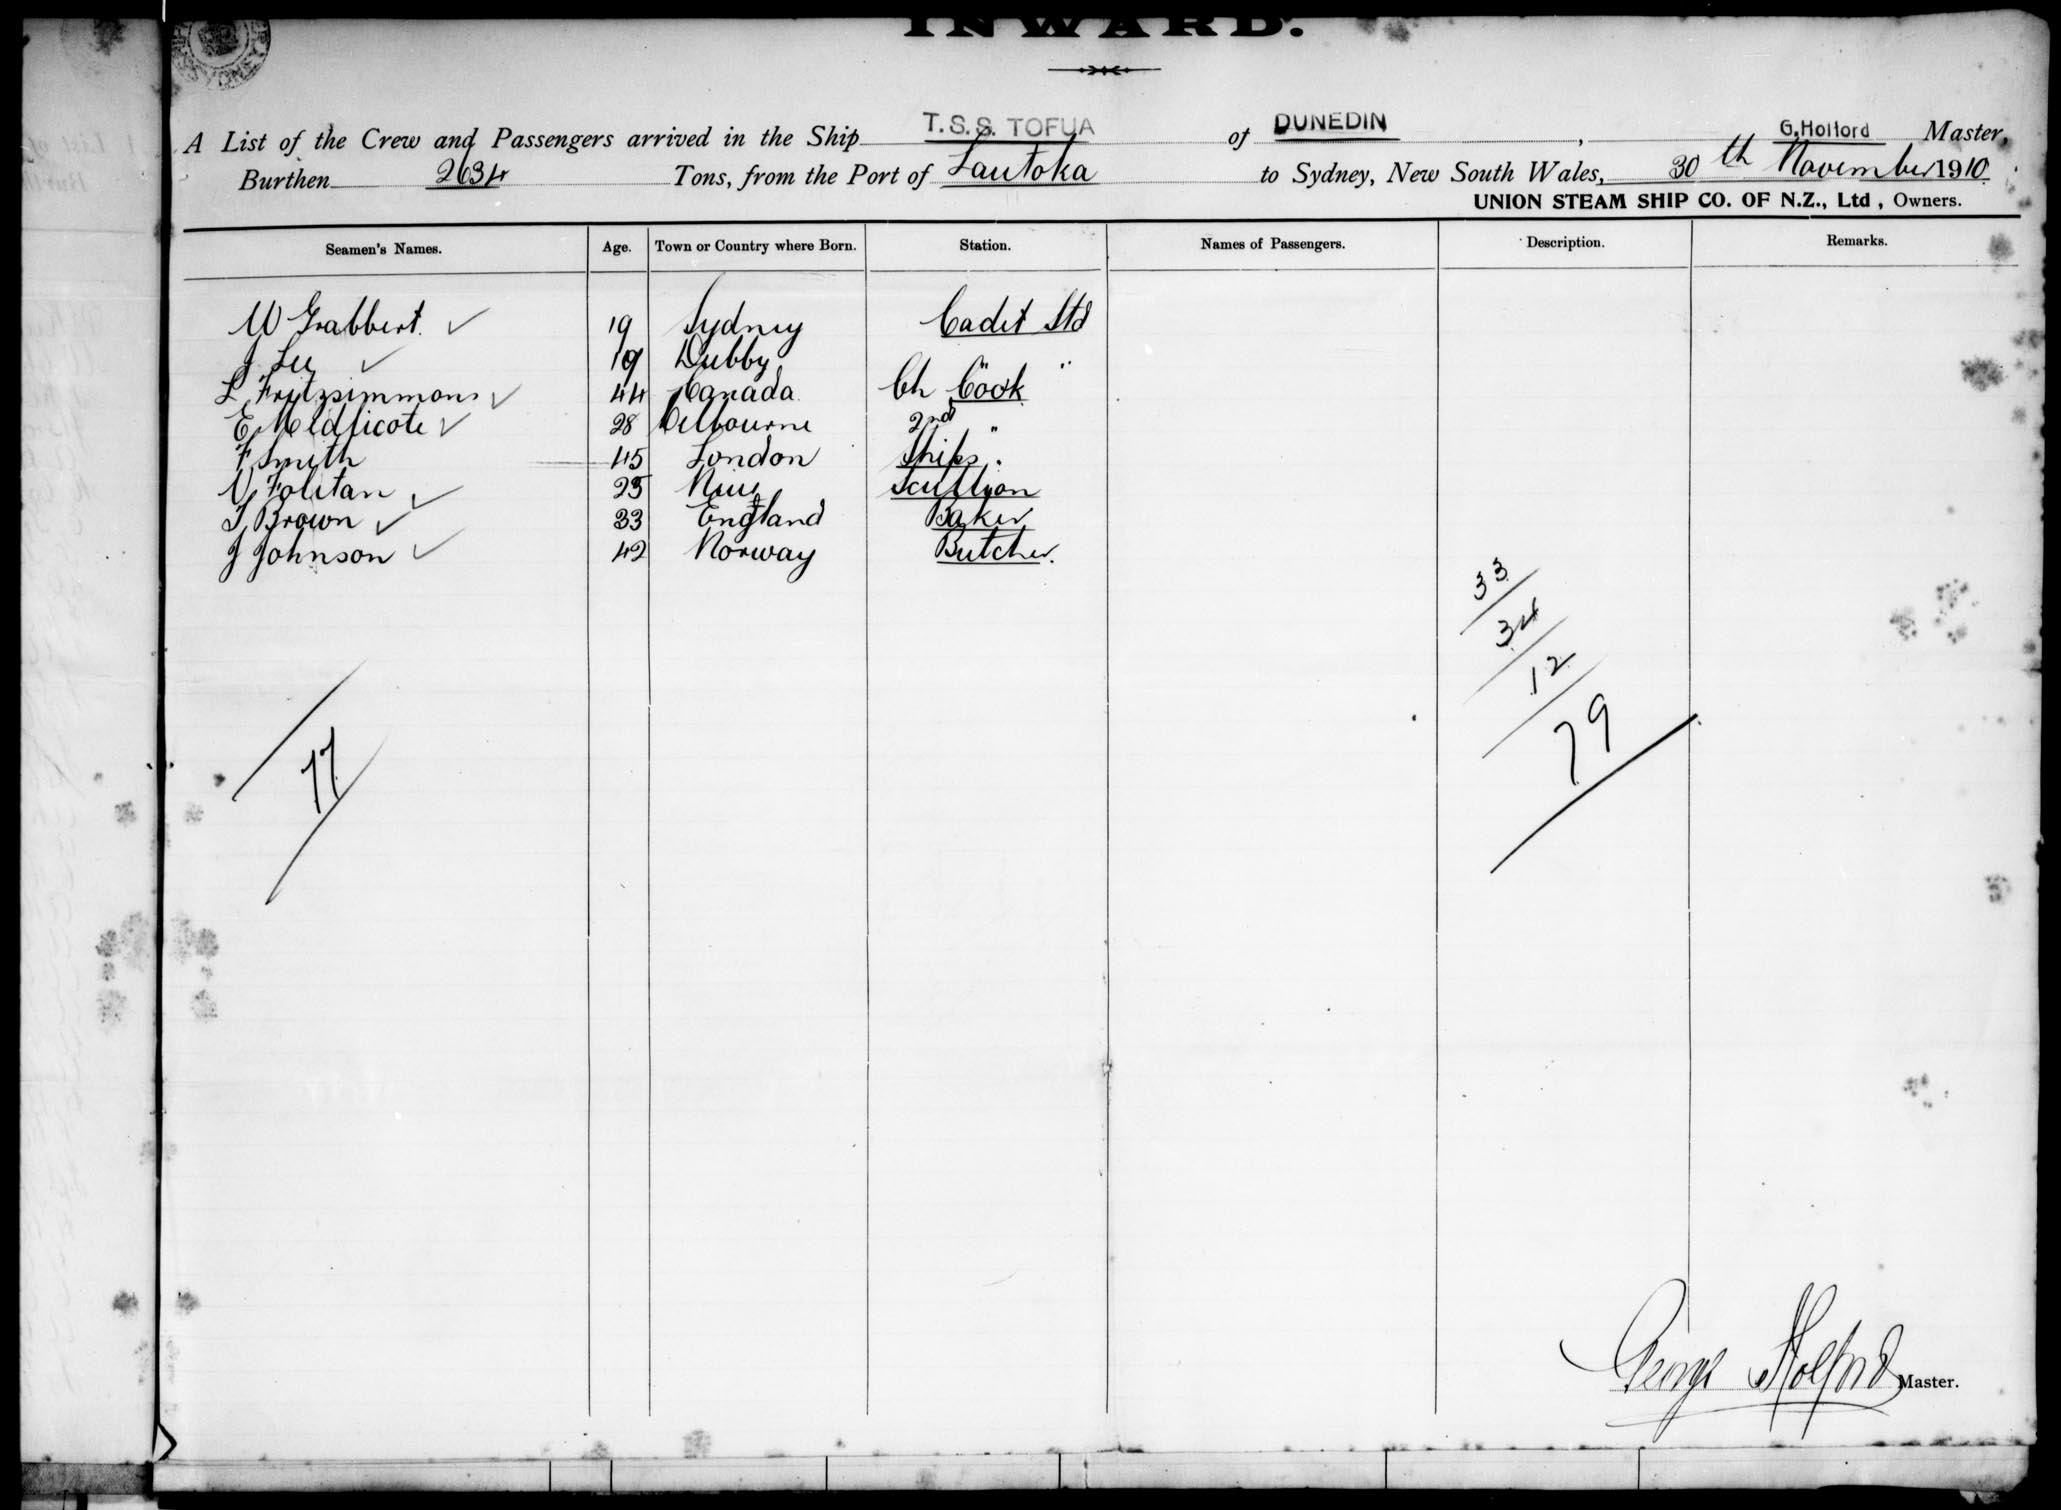 INWARD.
SYDNEY
A List of the Crew and Passengers arrived in the Ship T.S.S. TOFUA of DUNEDIN, G. Holford Master,
Burthen 2634 Tons, from the Port of Lautoka to Sydney, New South Wales, 30th November 1910
UNION STEAM SHIP CO. OF N.Z., Ltd, Owners.
Seamen's Names. Age. Town or Country where Born. Station. Names of Passengers. Description. Remarks.
W Grabbert. ✓ 19 Sydney Cadet Std
J Lee ✓ 19 Dubby " "
L Fritzsimmons ✓ 44 Canada Ch Cook
E Meldlicote ✓ 28 Melbourne 2nd "
F Smith 45 London Ships "
V Folitan ✓ 25 Niue Scullion
T Brown ✓ 33 England Baker
J Johnson ✓ 42 Norway Butcher.
33
34
12
79
77
George Holford Master.